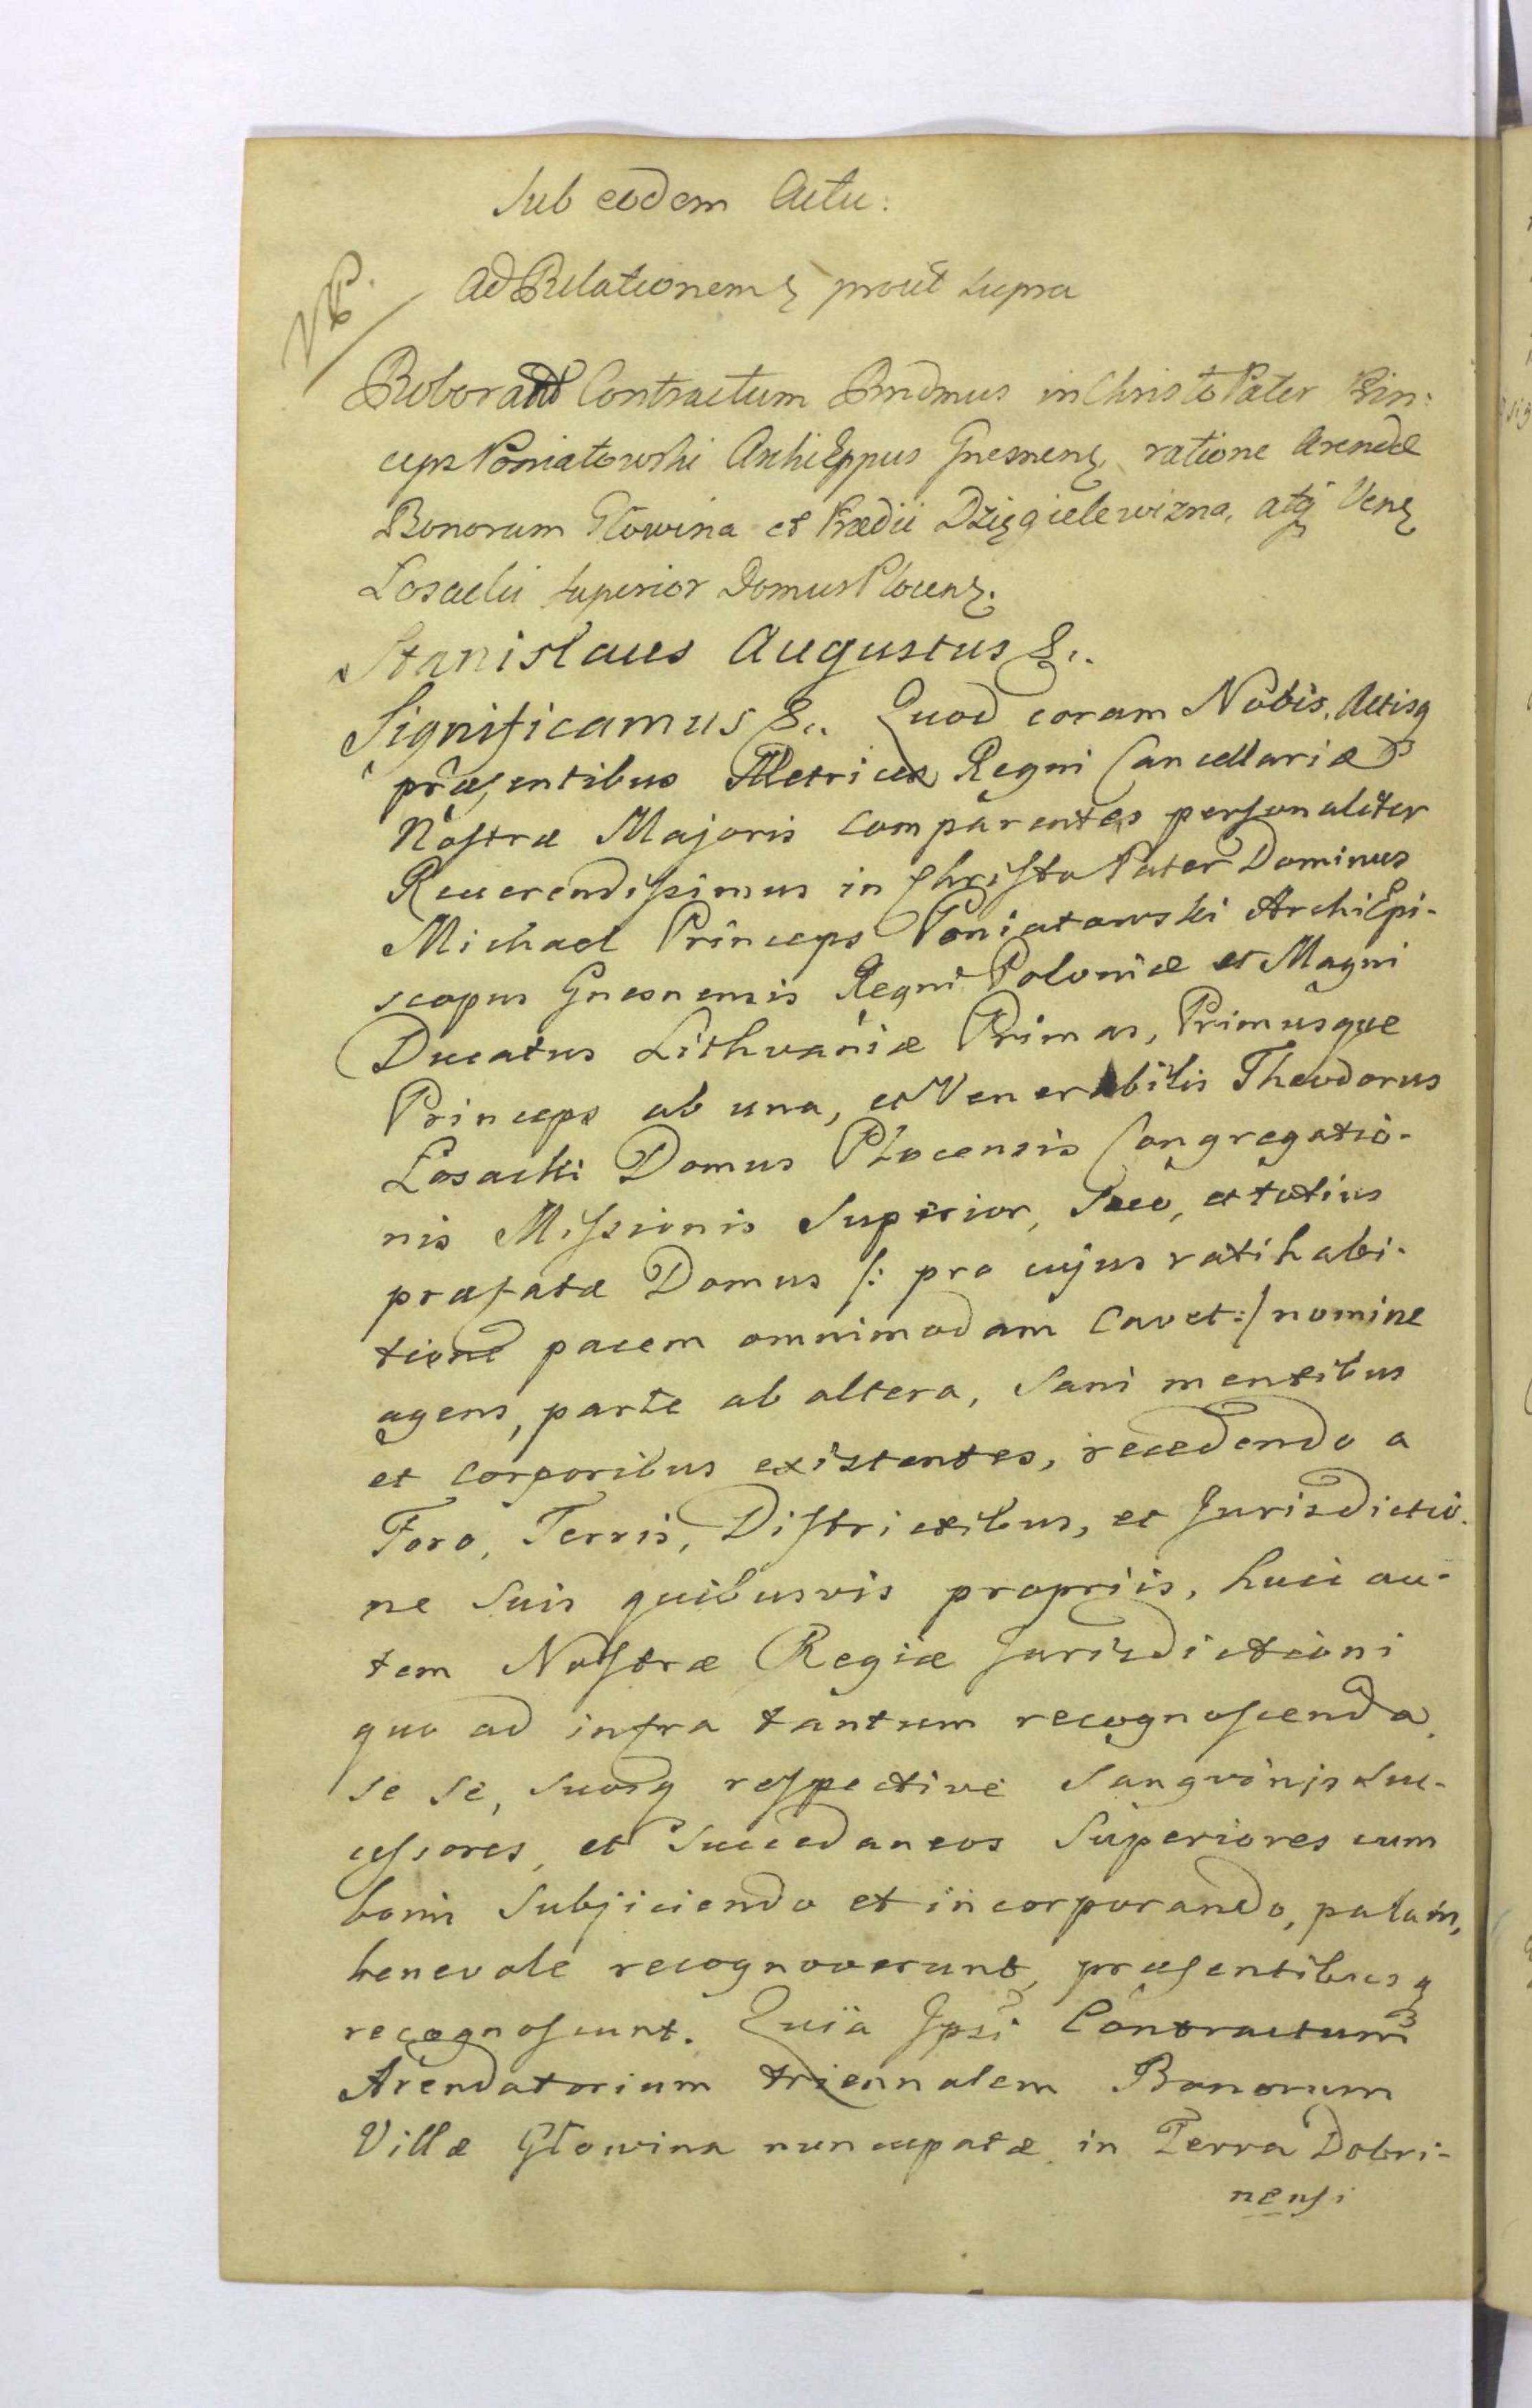 Sub eodem Actu:
NB.
Ad Relationem prout supra
Roborant Contractum Rndmus in Christo Pater Prin:
ceps Poniatowski Archi Eppus Gnesnens ratione Arendæ
Bonorum Głowina et Prædii Dzięgielewizna, atq Vens
Łosacki Superior Domus Plocens.
Stanislaus Augustus &..
Significamus &.. Quod coram Nobis, Actisq
præsentibus Metrices Regni Cancellariæ
Nostræ Majoris comparentes personaliter
Reverendissimus in Christo Pater Dominus
Michael Princeps Poniatowski ArchiEpi-
scopus Gnesnensis Regni Poloniæ et Magni
Ducatus Lithvaniæ Primas, Primusque
Princeps ab una, et Venerabilis Theodorus
Łosacki Domus Plocensis Congregatio-
nis Missionis Superior, Suo, et totius
præfatæ Domus /: pro cujus ratihabi-
tione pacem omnimodam cavet :/ nomine
agens, parte ab altera, Sani mentibus
et corporibus existentes, recedendo a
Foro, Terris, Districtibus, et Jurisdictio-
ne Suis quibusvis propriis, huic au-
tem Nostræ Regiæ Jurisdictioni
quo ad infra tantum recognoscenda
se se, suosq respective Sangvinis suc-
cessores, et Succedaneos Superiores cum
bonis Subjiciendo et incorporando, palam,
benevole recognoverunt, præsentibusq
recognoscunt. Quia Ipsi Contractum
Arendatorium triennalem Bonorum
Villæ Głowina nuncupatæ in Terra Dobri-
nensi